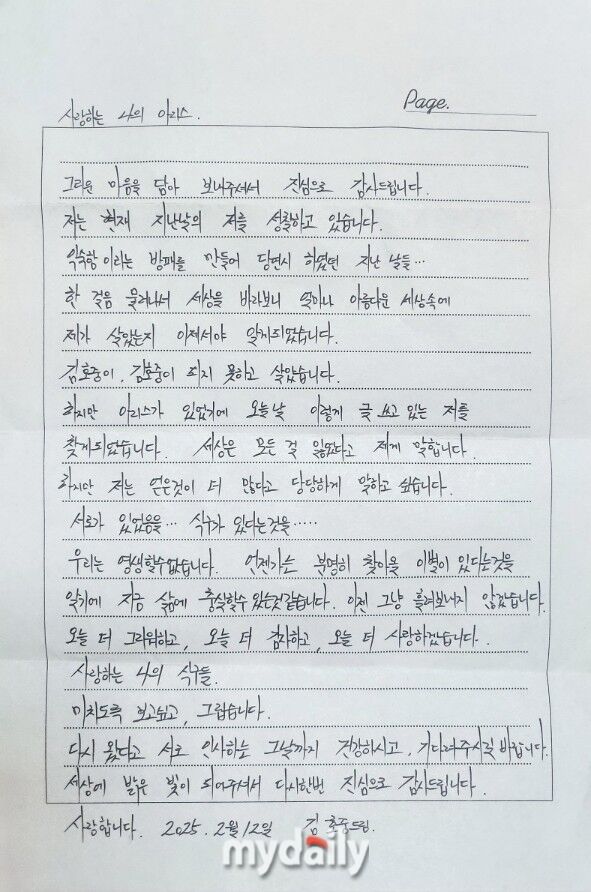 Page.
사랑하는 나의 아리스.
그리운 마음을 담아 보내주셔서 진심으로 감사드립니다.
저는 현재 지난날의 저를 성찰하고 있습니다.
익숙함이라는 방패를 만들어 당연시 하였던 지난 날들...
한 걸음 물러나서 세상을 바라보니 얼마나 아름다운 세상속에
제가 살았는지 이제서야 알게되었습니다.
김호중이, 김호중이 되지 못하고 살았습니다.
하지만 아리스가 있었기에 오늘날 이렇게 글 쓰고 있는 저를
찾게되었습니다. 세상은 모든 걸 잃었다고 제게 말합니다.
하지만 저는 얻은것이 더 많다고 당당하게 말하고 싶습니다.
서로가 있었음을... 식구가 있다는것을.....
우리는 영생할수없습니다. 언젠가는 분명히 찾아올 이별이 있다는것을
알기에 지금 삶에 충실할수 있는것같습니다. 이젠 그냥 흘려보내지 않겠습니다.
오늘 더 그리워하고, 오늘 더 감사하고, 오늘 더 사랑하겠습니다.
사랑하는 나의 식구들.
미치도록 보고싶고, 그립습니다.
다시 왔다고 서로 인사하는 그날까지 건강하시고, 기다려주시길 바랍니다.
세상에 밝은 빛이 되어주셔서 다시한번 진심으로 감사드립니다.
사랑합니다. 2025. 2월 12일 김 호중드림.
mydaily